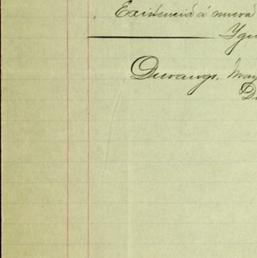 Existencia á nueva
Ygu
Durango. May